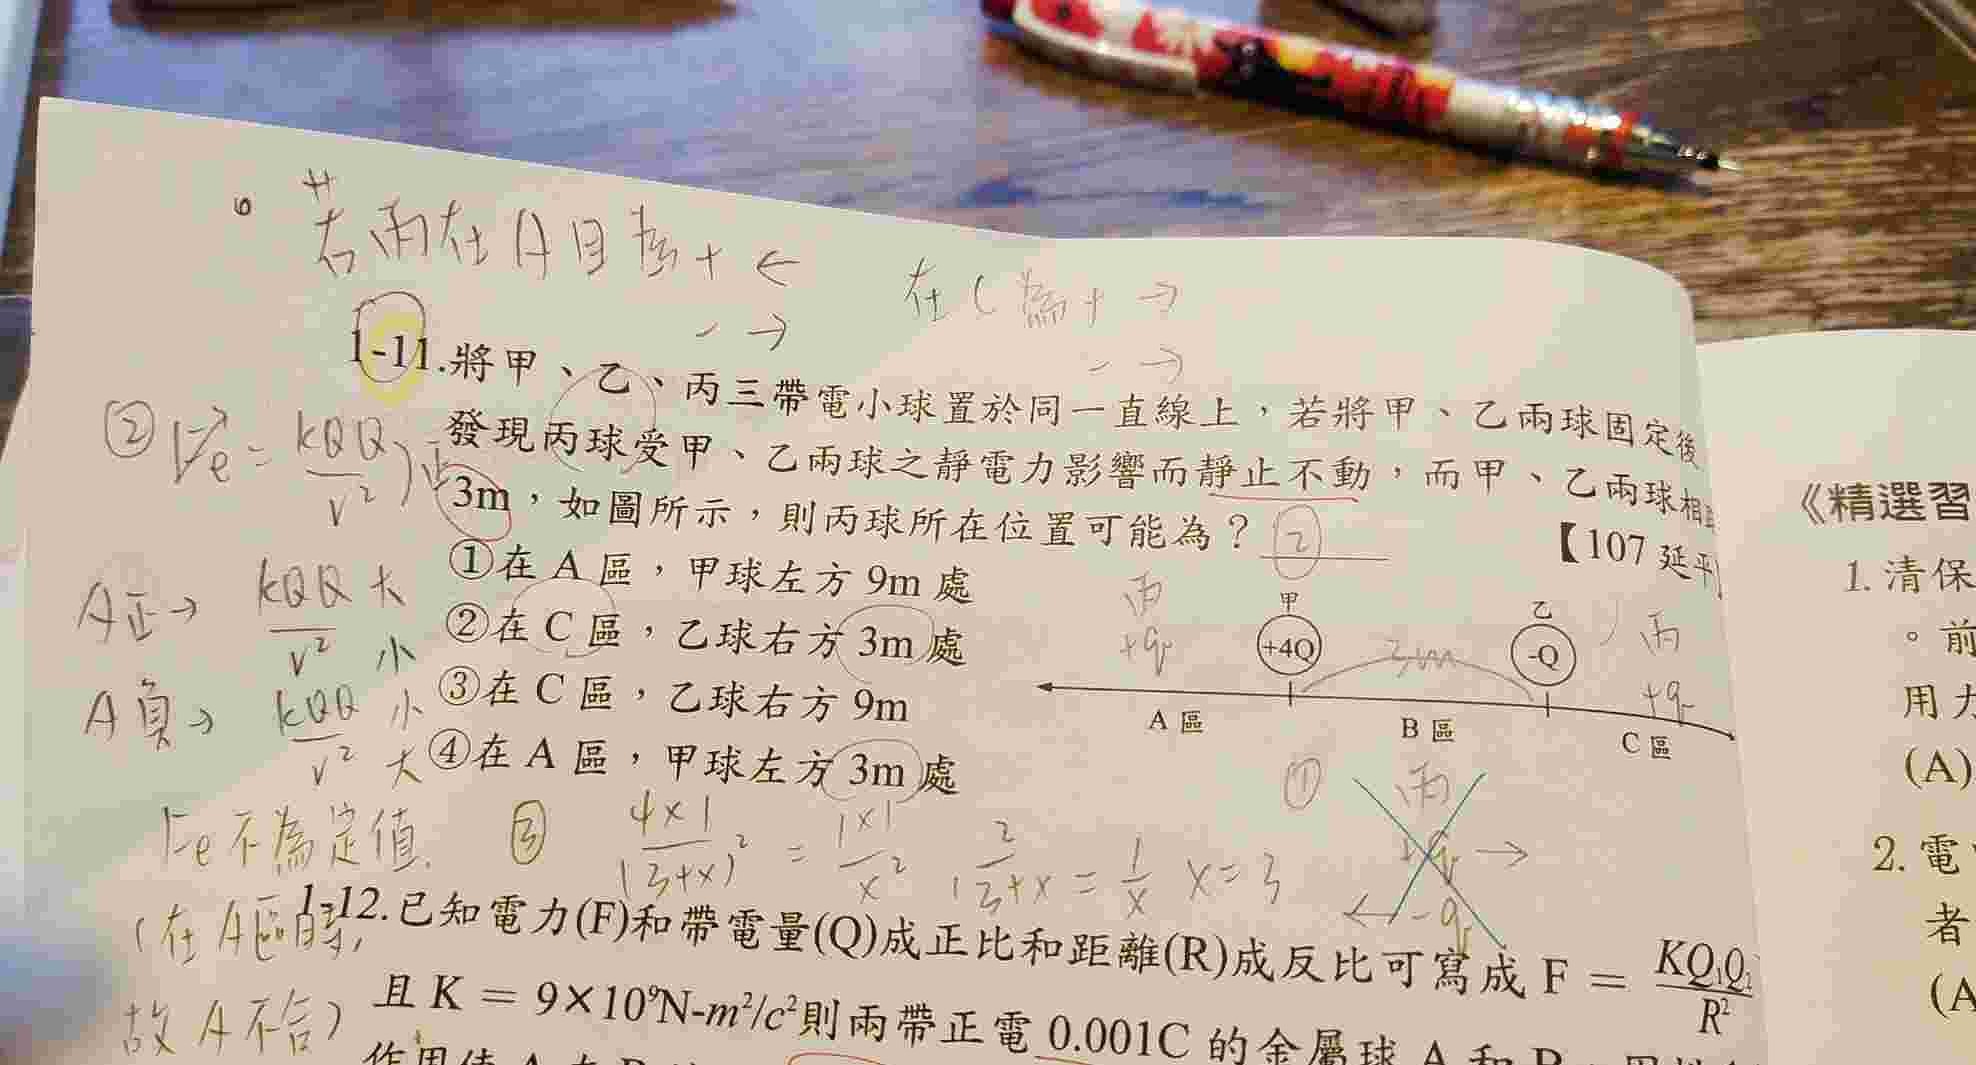 若丙在A且為+ ←
- →
在C為+ →
- →
1-11.將甲、乙、丙三帶電小球置於同一直線上,若將甲、乙兩球固定後
發現丙球受甲、乙兩球之靜電力影響而靜止不動,而甲、乙兩球相
3m,如圖所示,則丙球所在位置可能為? 2
【107 延平
①在 A 區,甲球左方 9m 處
②在 C 區,乙球右方 3m 處
③在 C 區,乙球右方 9m
④在 A 區,甲球左方 3m 處
② Fe = kQQ/r²
A正→ kQQ/r² 大 小
A負→ kQQ/r² 小 大
Fe不為定值
(在A區時,
故A不合)
丙 +q
甲
+4Q
3m
乙
-Q
丙
+q
A 區
B 區
C 區
① 丙
+q →
← -q
③ 4×1/(3+x)² = 1×1/x² 2/3+x = 1/x x=3
1-12.已知電力(F)和帶電量(Q)成正比和距離(R)成反比可寫成 F = KQ₁Q₂/R²
且 K = 9×10⁹N-m²/c²則兩帶正電 0.001C 的金屬球 A 和
《精選習
1. 清保
。前
用
(A)
2. 電
者
(A